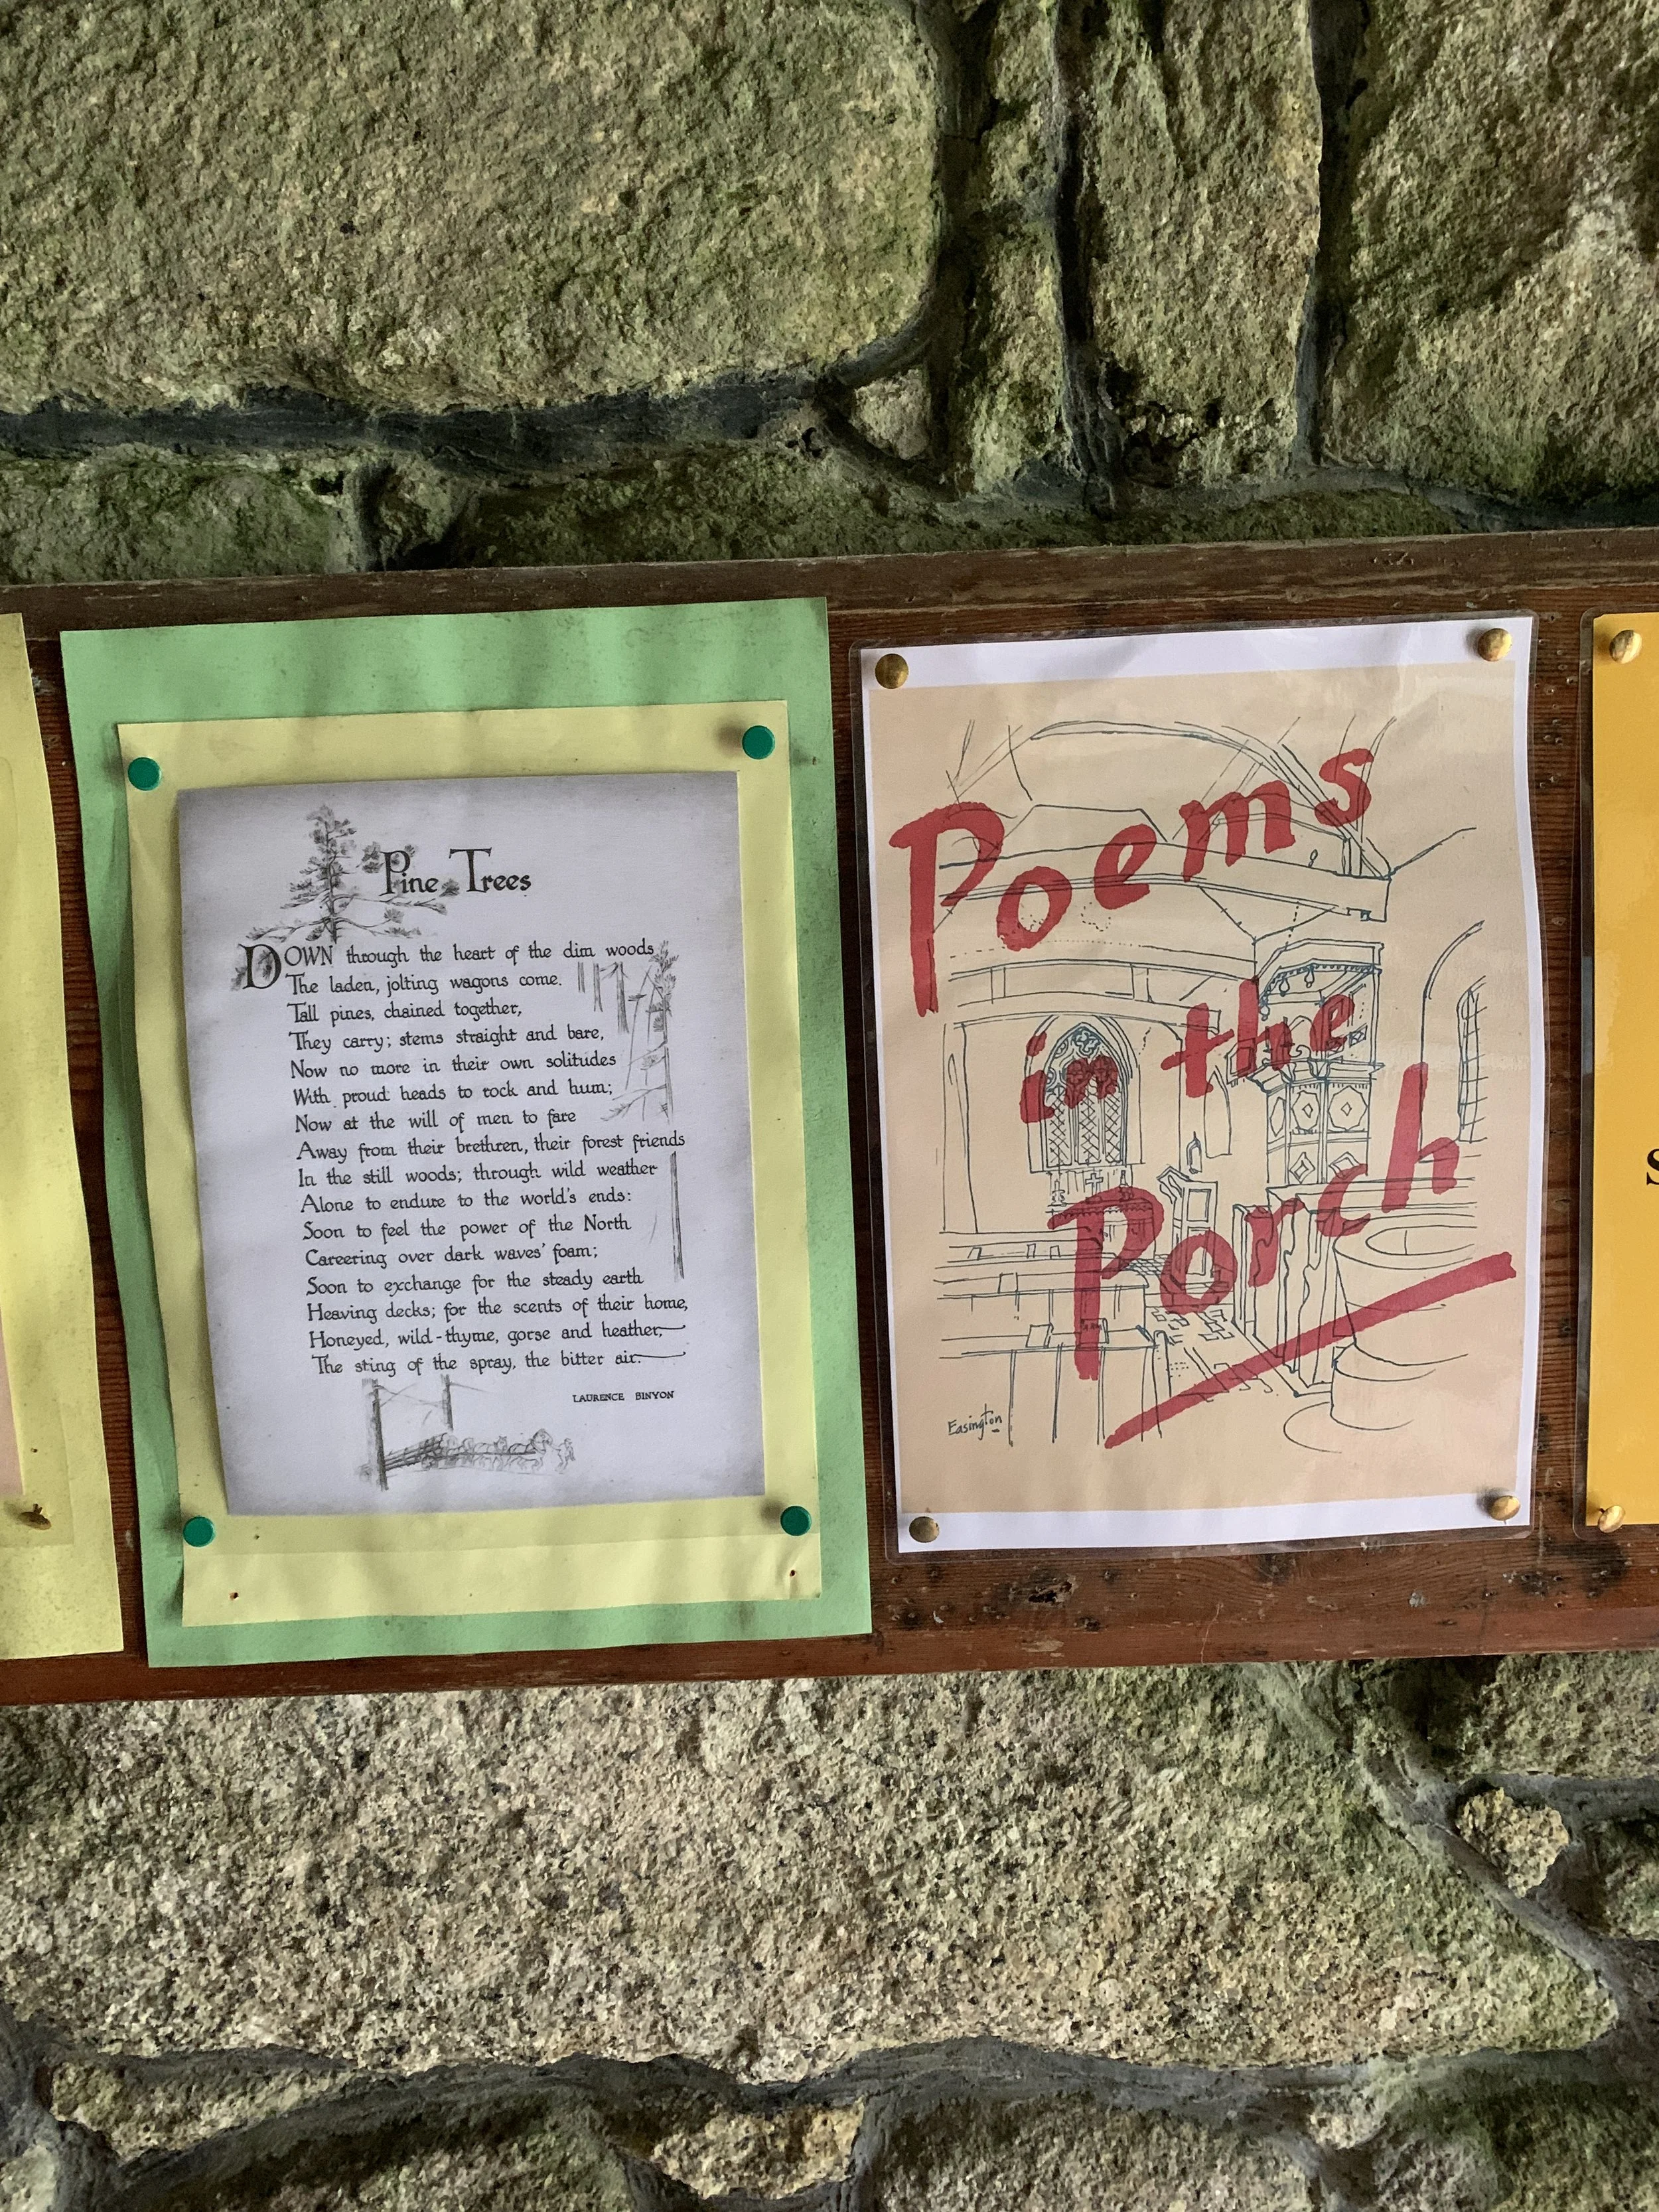 Pine Trees
DOWN through the heart of the dim woods
The laden, jolting wagons come.
Tall pines, chained together,
They carry; stems straight and bare,
Now no more in their own solitudes
With proud heads to rock and hum;
Now at the will of men to fare
Away from their brethren, their forest friends
In the still woods; through wild weather
Alone to endure to the world's ends:
Soon to feel the power of the North
Careering over dark waves' foam;
Soon to exchange for the steady earth
Heaving decks; for the scents of their home,
Honeyed, wild-thyme, gorse and heather,
The sting of the spray, the bitter air.
LAURENCE BINYON
Poems
in the
Porch
Easington
S